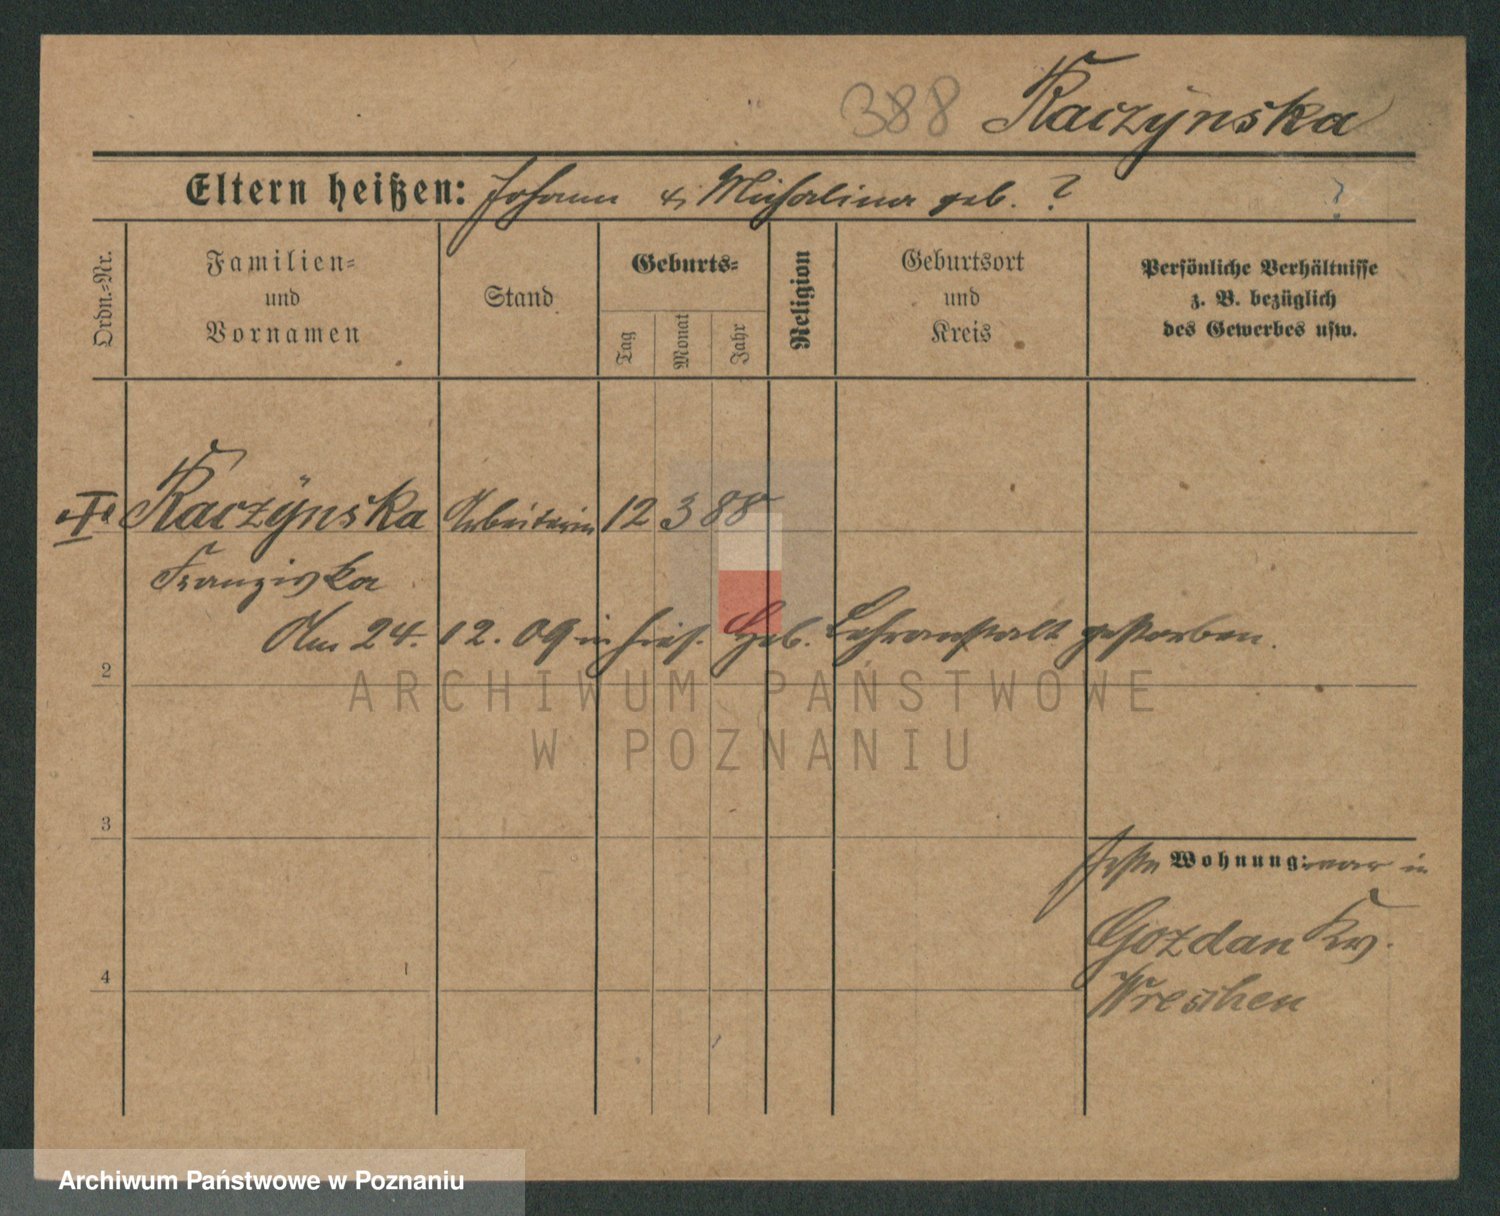 388 Kaczynska
Eltern heißen: Johann & Michalina geb. ?
?
Ordn.-Nr.
Familien-
und
Vornamen
Stand
Geburts-
Tag
Monat
Jahr
Religion
Geburtsort
und
Kreis
Persönliche Verhältnisse
z. B. bezüglich
des Gewerbes usw.
Kaczÿnska Arbeiterin 12 3 88
Franziska
Am 24. 12. 09 in hies. Heb. Lehranstalt gestorben.
2
ARCHIWUM PAŃSTWOWE
W POZNANIU
3
Wohnung: war in
4
Gozdan Kr.
Wreschen
Archiwum Państwowe w Poznaniu